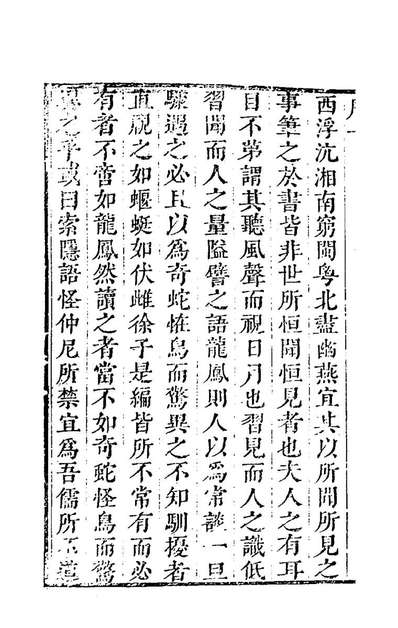 西浮沅湘南窮閩粵北盡幽燕宜其以所聞所見之
事筆之於書皆非世所恒聞恒見者也夫人之有耳
目不第謂其聽風聲而視日月也習見而人之識低
習聞而人之量隘譬之語龍鳳則人以為常談一旦
驟遇之必且以為奇蛇恠鳥而驚異之不知馴擾者
直視之如蝘蜓如伏雌徐子是編皆所不常有而必
有者不啻如龍鳳然讀之者當不如奇蛇怪鳥而驚
異之乎或曰索隱語怪仲尼所禁宜為吾儒所不道